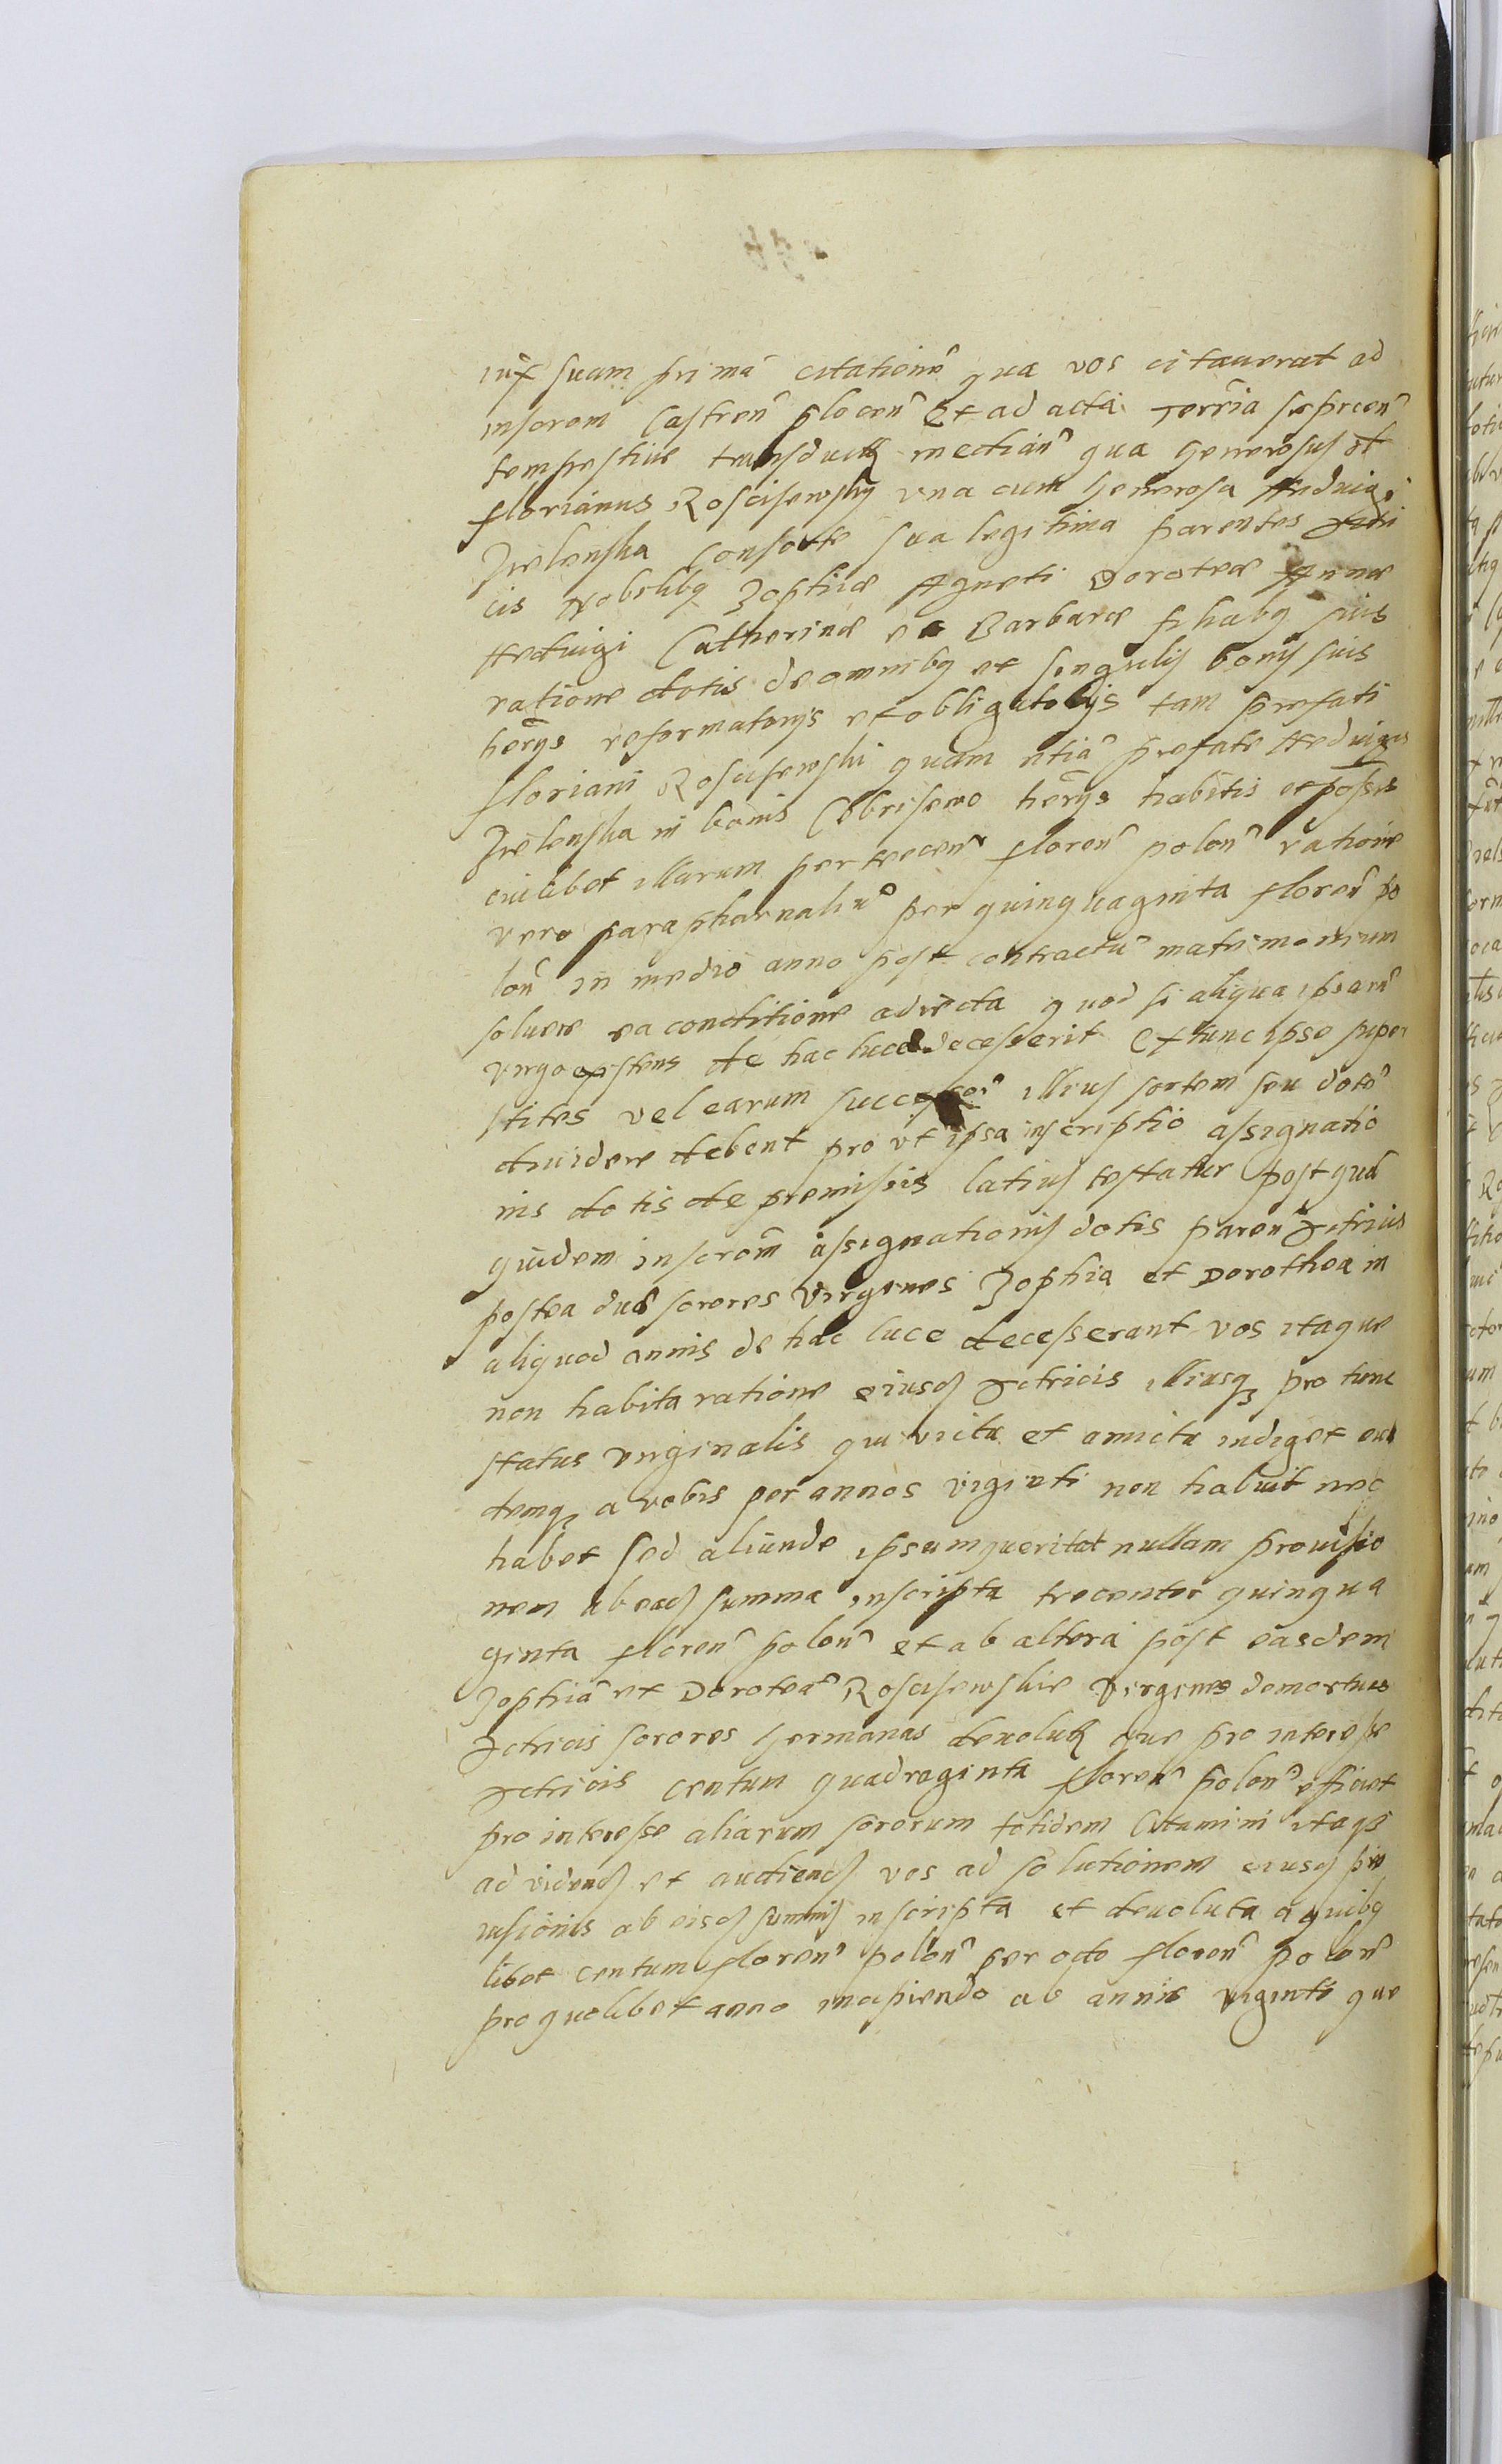 iux suam primã citationẽ qua vos citauerat ad
inscrõm Castreñ ploceñ Et ad acta Terr̃ia Sieprceñ
tempestiue transductã mediañ qua generosus ol
florianus Rosciszewsky vna cum generosa Heduige
Zielenska consorte sua legitima parentes Actri
cis Nobilibq Zophiæ Agneti Doroteæ Annæ
Heduigi Catherinæ et Barbaræ filiabq suis
ratione dotis de omnibq et singulis bonis suis
hær̃ys reformatorys et obligatorys tam prefati
floriani Rosciszewski quam etiã prefate Heduigis
Zielenska in bonis Cobrisewo hær̃ys habitis et possis
cuilibet illarum per trecen floreñ poloñ ratione
vero paraphernaliũ per quinquaginta floreñ po
loñ in medio anno post contractũ matrimonium
soluere ea conditione adiecta quod si aliqua ipsarũ
virgo existens de hac luce decesserit Ex tunc ipse super
stites vel earum illius sortem seu dotẽ
diuidere debent pro vt ipsa inscriptio assignatio
nis dotis de premissis latius testatur post quã
quidem inscrõm assignationis dotis pareñ Actricis
postea duæ sorores virgines Zophia et Dorothea in
aliquod annis de hac luce decesserant vos itaque
non habita ratione eiusd Actricis illiusq pro tunc
status virginalis qui victu et amictu indiget eun
demq a vobis per annos viginti non habuit nec
habet sed aliunde ipsum queritat nullam prouisio
nem ab ead summa inscripta trecentor quinqua
ginta floreñ poloñ et ab altera post easdem
Zophiã et Doroteã Rosciszewskie virgines demortuas
Actricis sorores germanas deuoluta que pro interesse
Actricis centum quadraginta floreñ poloñ efficiet
pro interesse aliarum sororum totidem Citamini itaq
ad videnđ et audienđ vos ad solutionem eiusd pro
uisionis ab eisd summis inscripta et deuoluta a quibq
libet centum floreñ poloñ per octo floreñ poloñ
pro quolibet anno incipiendo ab annis viginti que